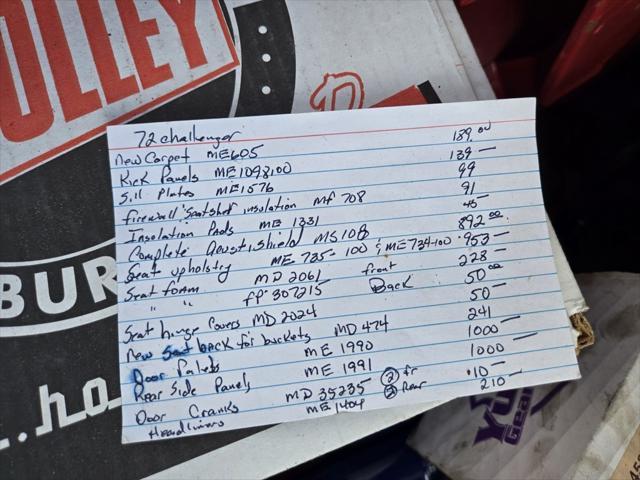 OLLEY
BUR
72 challenger
new Carpet ME605 189.00
Kick Panels ME1098,00 139 —
Sill Plates ME1576 99
firewall "Seatshet" insulation MF 708 91
Insolation Pads ME 1331 45 —
Complete Acustishield MS108 892.00
Seat upholstry ME 735-100 & ME 734-100 953 —
Seat foam MD 2061 front 228 —
" " FP 307215 Back 50.00
Seat hinge Covers MD 2024 50 —
new Seat back for buckets MD 474 241
Door Panels ME 1990 1000 —
Rear Side Panels ME 1991 1000 —
Door Cranks MD 35235 2 fr 2 Rear .10 —
Headliners ME 1404 210 —
Gear